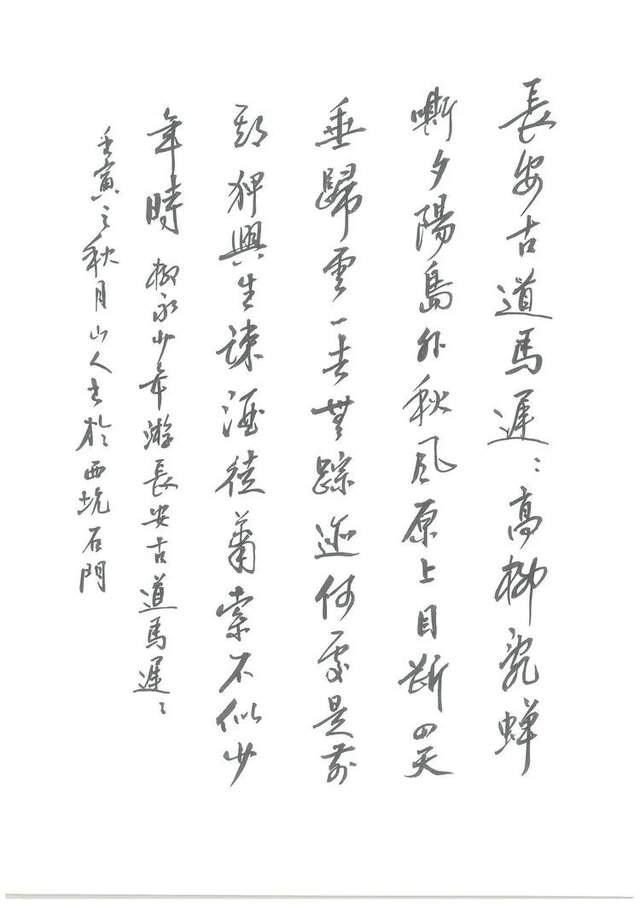 長安古道馬遲〻高柳亂蟬
嘶夕陽島外秋風原上目斷四天
垂歸雲一去無踪迹何處是前
期狎興生疎酒徒蕭索不似少
年時 柳永少年游長安古道馬遲〻
壬寅之秋月山人書於西坑石門